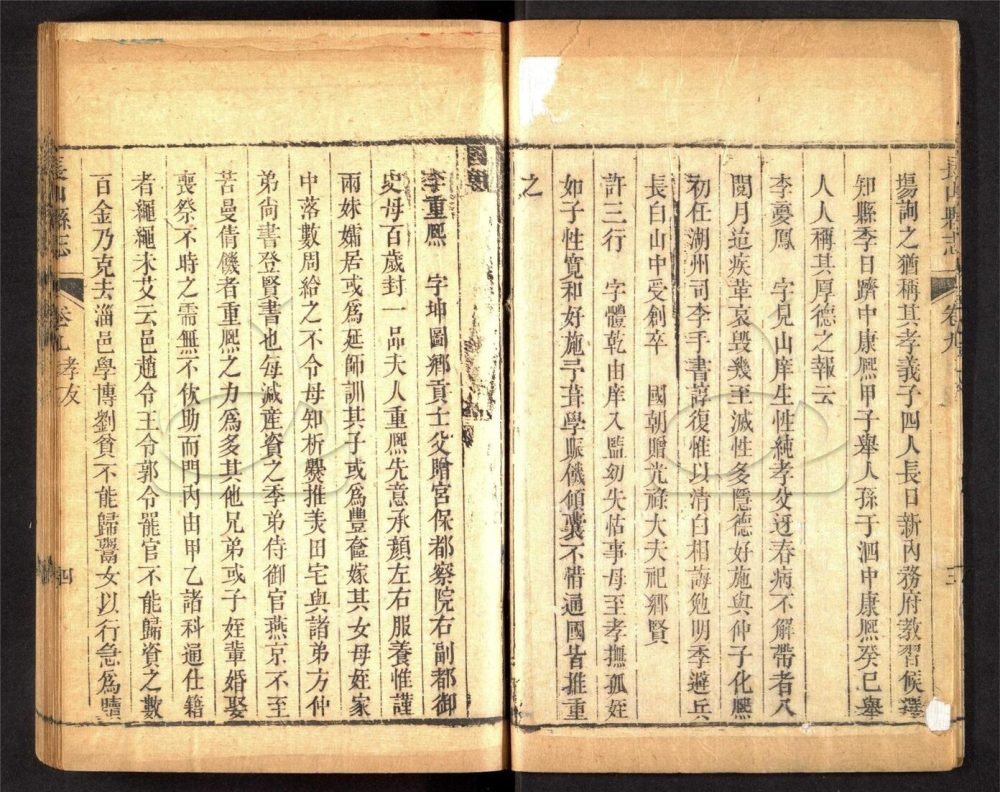 長山縣志 卷九 三
塲詢之猶稱其孝義子四人長日新内務府教習候選
知縣季日躋中康熙甲子舉人孫于泗中康熙癸巳舉
人人稱其厚德之報云
李憂鳳 字見山庠生性純孝父迓春病不解帶者八
閱月迨疾革哀毀幾至滅性多隱德好施與仲子化熙
初任湖州司李手書諄復惟以清白相誨勉明季避兵
長白山中受創卒 國朝贈光祿大夫祀鄉賢
許三行 字體乾由庠入監幼失怙事母至孝撫孤姪
如子性寬和好施予葺學賑饑傾囊不惜通國皆推重
之
李重熙 字坤圖鄉貢士父贈宮保都察院右副都御
史母百歲封一品夫人重熙先意承顏左右服養惟謹
兩妹孀居或為延師訓其子或為豐奩嫁其女母姪家
中落數周給之不令母知析爨推美田宅與諸弟方仲
弟尚書登賢書也每減産資之季弟侍御官燕京不至
苦曼倩饑者重熙之力為多其他兄弟或子姪輩婚娶
喪祭不時之需無不佽助而門内由甲乙諸科通仕籍
者繩繩未艾云邑趙令王令郭令罷官不能歸資之數
百金乃克去淄邑學博劉貧不能歸鬻女以行急為贖
長山縣志 卷九 孝友 四